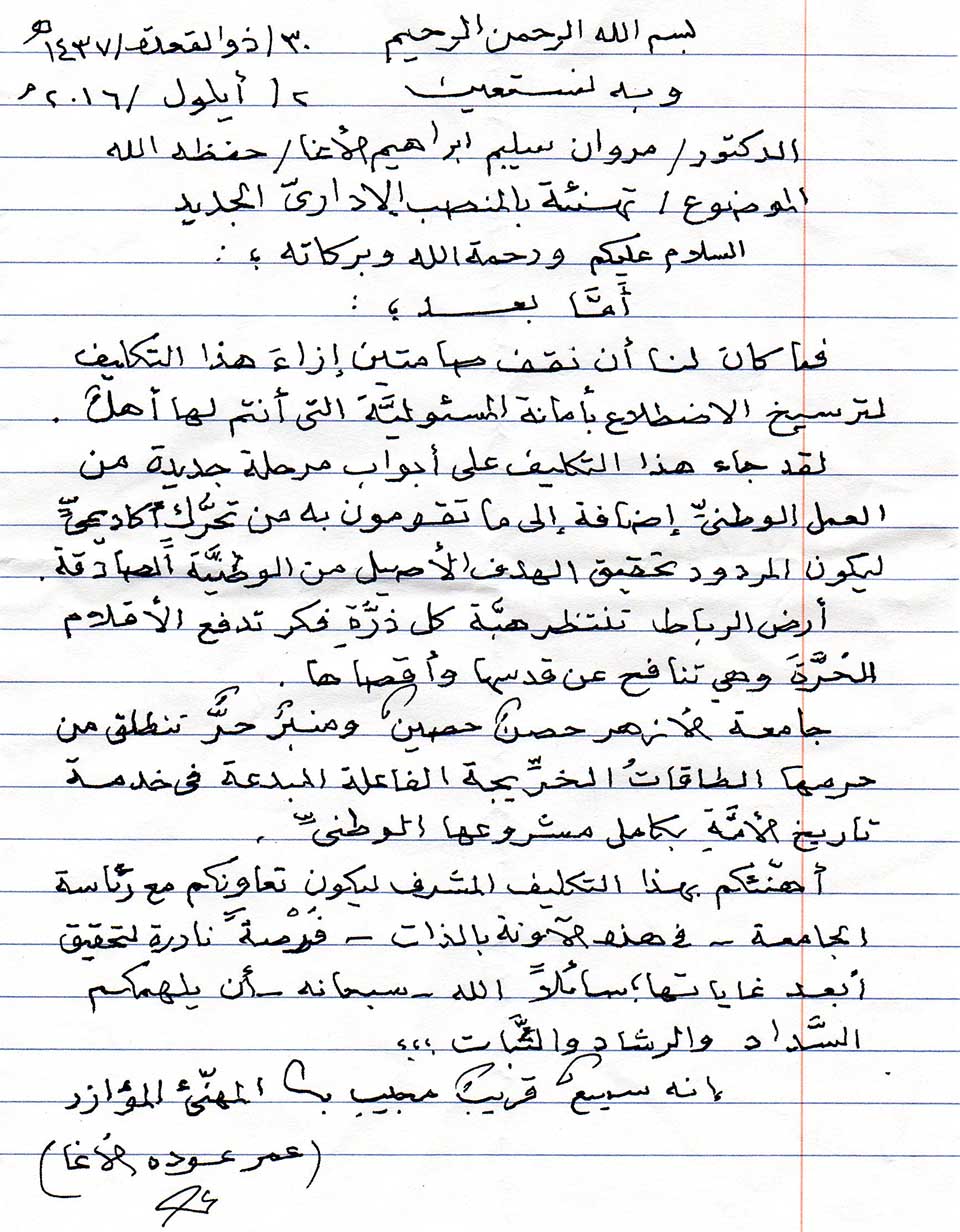 بسم الله الرحمن الرحيم ٣٠/ذو القعدة/١٤٣٧هـ
وبه نستعين ٢/أيلول/٢٠١٦م
الدكتور/ مروان سليم ابراهيم الأغا/ حفظه الله
الموضوع/ تهنئة بالمنصب الإداريّ الجديد
السلام عليكم ورحمة الله وبركاته ؛ :
أَمَّا بعــد ؛ :
فما كان لنا أن نقف صامتين إزاءَ هذا التكليف
لترسيخ الاضطلاع بأمانة المسئوليَّة التى أنتم لها أهلٌ .
لقد جاء هذا التكليف على أبواب مرحلة جديدة من
العمل الوطنىِّ إضافة إلى ما تقومون به من تحرُّك أكاديمىٍّ
ليكون المردود تحقيق الهدف الأصيل من الوطنيَّة الصادقة .
أرض الرباط تنتظر هبَّة كل ذرَّةِ فكر تدفع الأقلام
الحُرَّةَ وهي تنافح عن قدسها وأقصاها .
جامعة الأزهر حصنٌ حصينٌ ومنبرٌ حرٌّ تنطلق من
حرمها الطاقاتُ الخرِّيجة الفاعلة المبدعة فى خدمة
تاريخ الأمَّةِ بكامل مشروعها الوطنىِّ .
أهنّئكم بهذا التكليف المشرف ليكون تعاونكم مع رئاسة
الجامعة - فى هذه الآونة بالذات - فُرْصةً نادرة لتحقيق
أبعد غاياتها؛ سائلاً الله - سبحانه - أن يلهمكم
السَّداد والرشاد والثَّبات ؛؛؛
إنه سميعٌ قريبٌ مجيب المهنّئ المؤازر
(عمر عوده الأغا)